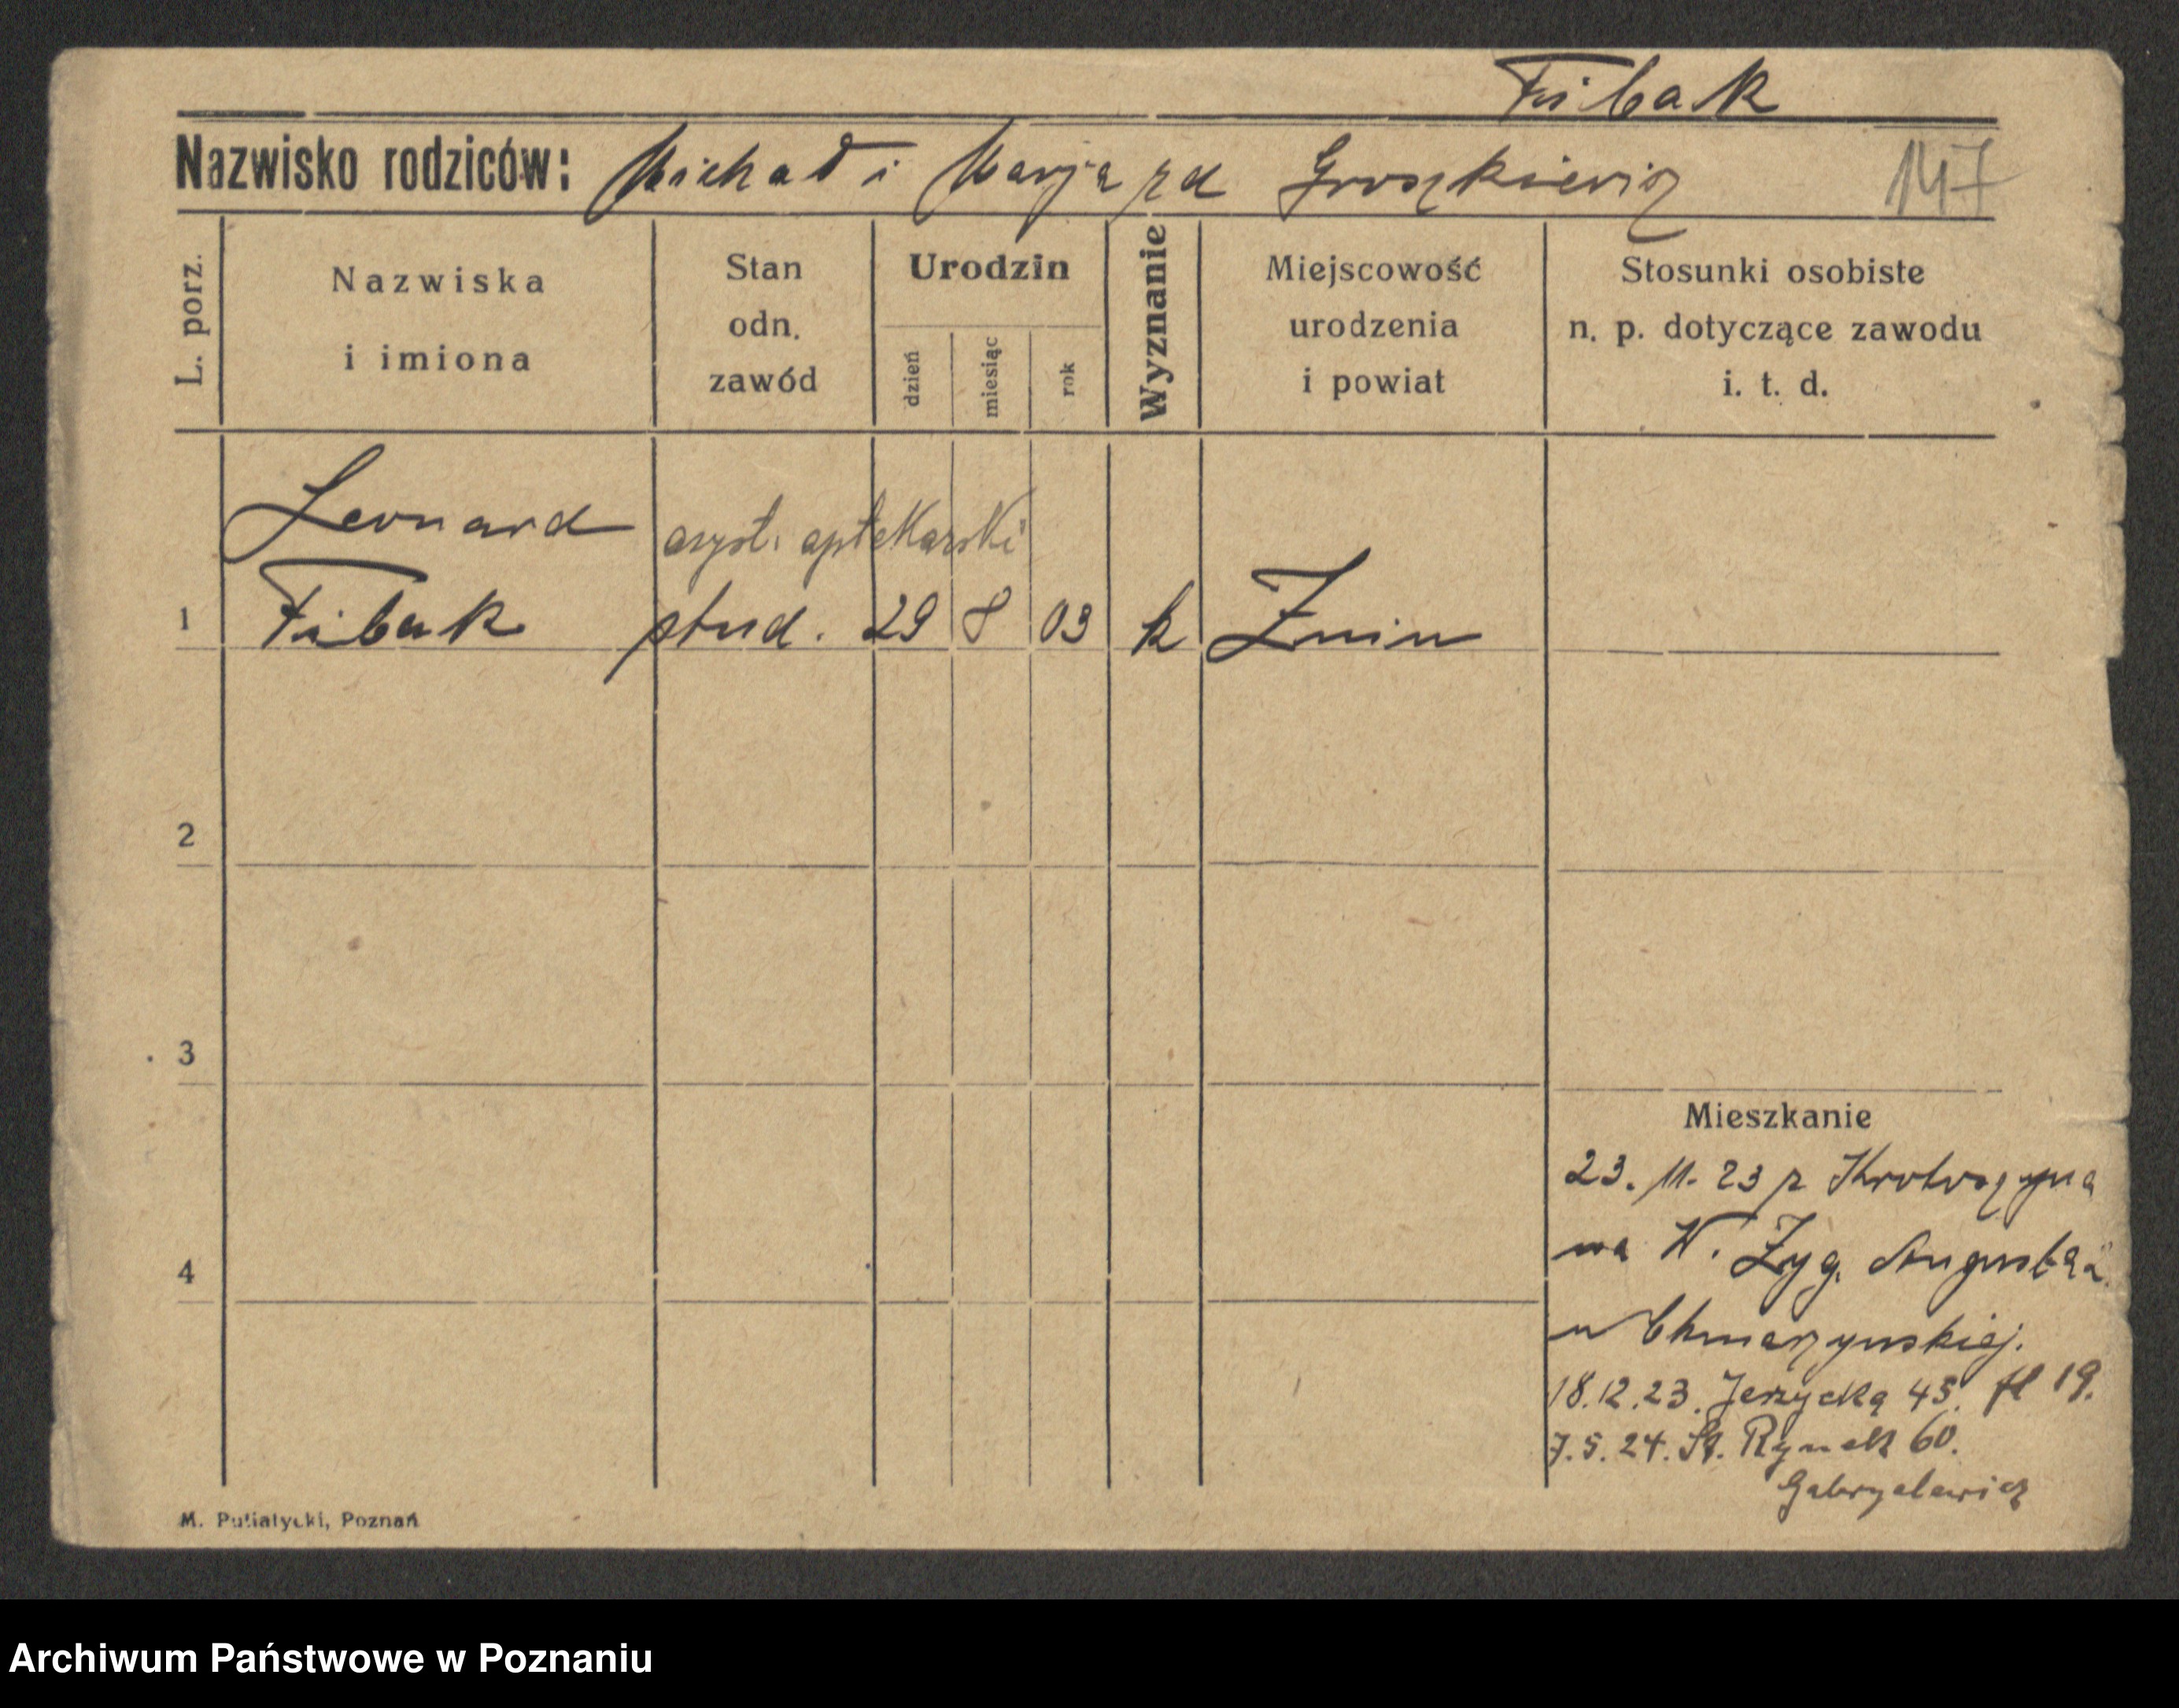 Fibak
Nazwisko rodziców: Michał i Marja zd Groszkiewicz 147
L. porz.
Nazwiska
i imiona
Stan
odn.
zawód
Urodzin
dzień
miesiąc
rok
Wyznanie
Miejscowość
urodzenia
i powiat
Stosunki osobiste
n. p. dotyczące zawodu
i. t. d.
Leonard asyst. aptekarski
1 Fibak stud. 29 8 03 k Żnin
2
3
Mieszkanie
23. 11. 23 z Krotoszyna
4
na W. Zyg. Augusta
u Chmarzynskiej.
18.12.23. Jerzycką 45. 19.
7.5.24. St. Rynek 60.
Gabryelewicz
M. Putiatycki, Poznań
Archiwum Państwowe w Poznaniu